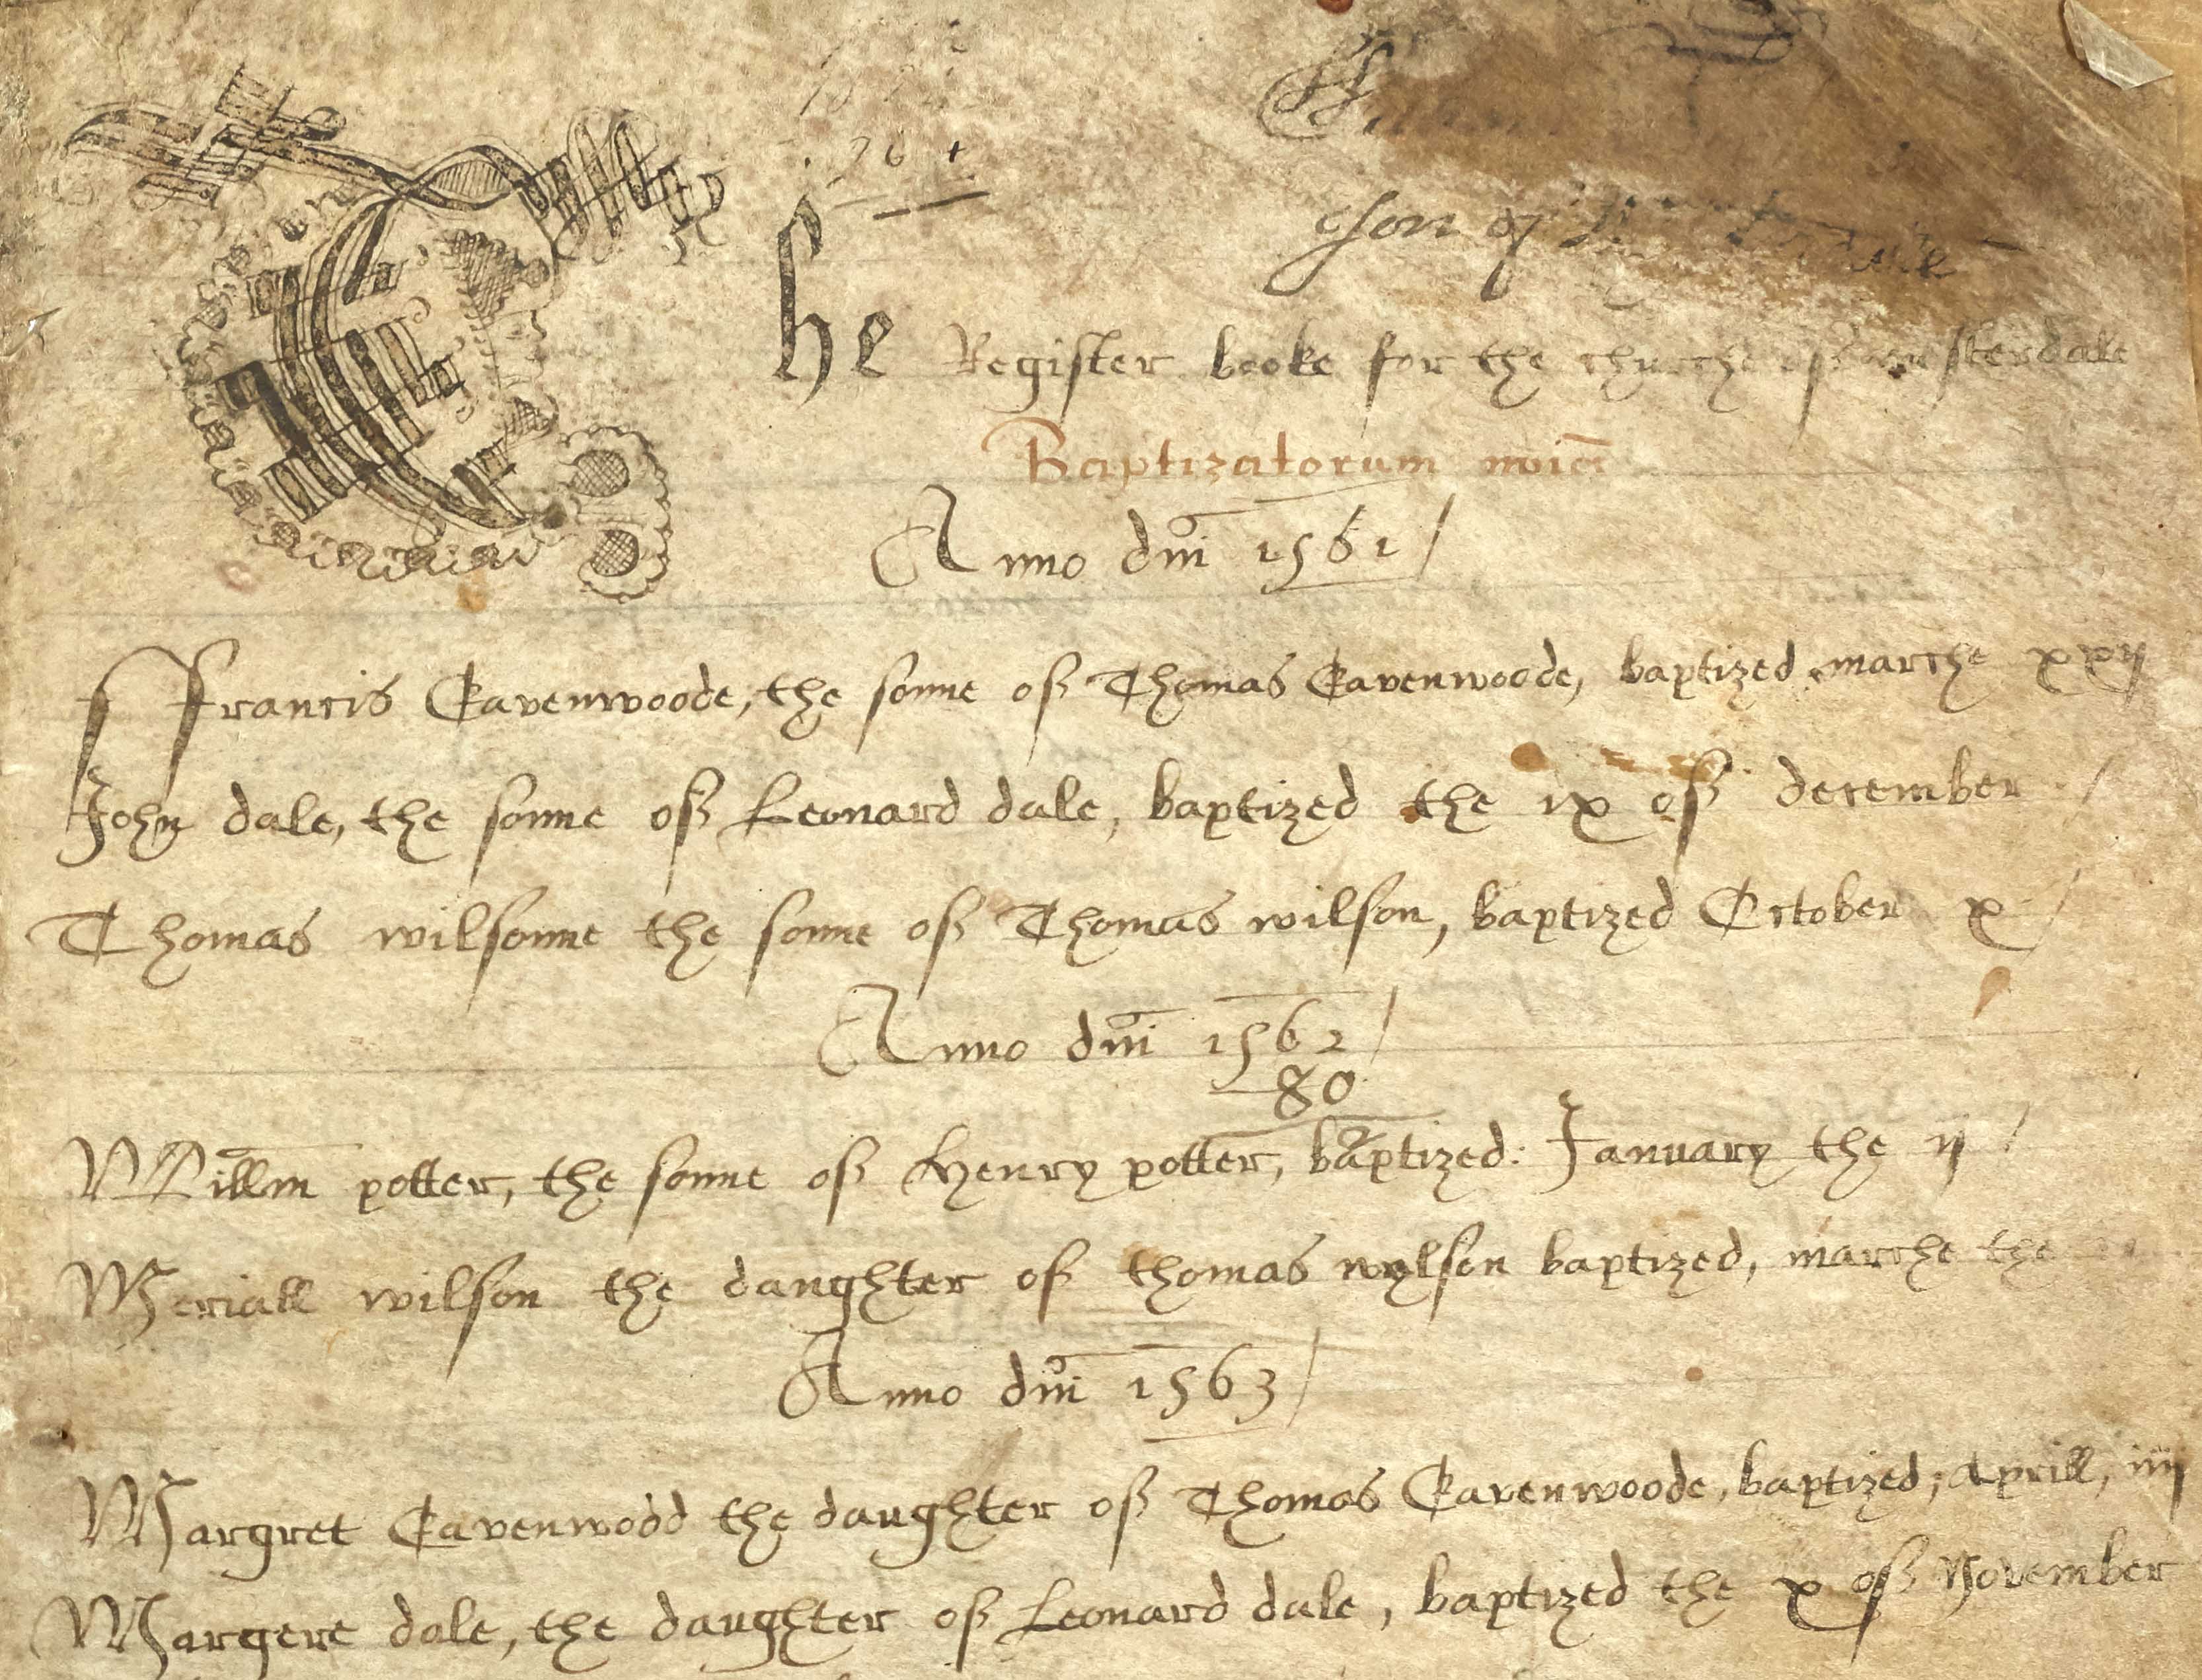 76 +
son of
The Register booke for the churche of westerdale
Baptizatorum noīa
Anno dñi 1561/
Ffrancis Cavenwoode, the sonne of Thomas Cavenwoode, baptized marche xxij
John dale, the sonne of Leonard dale, baptized the ix of december /
Thomas wilsonne the sonne of Thomas wilson, baptized October x /
Anno dñi 1562/
80
Willm potter, the sonne of Henry potter, baptized: January the ij /
Meriall wilson the daughter of thomas wylson baptized, marche the
Anno dñi 1563/
Margret Cavenwodd the daughter of Thomas Cavenwoode, baptized; Aprill, iiij
Margere dale, the daughter of Leonard dale, baptized the x of November